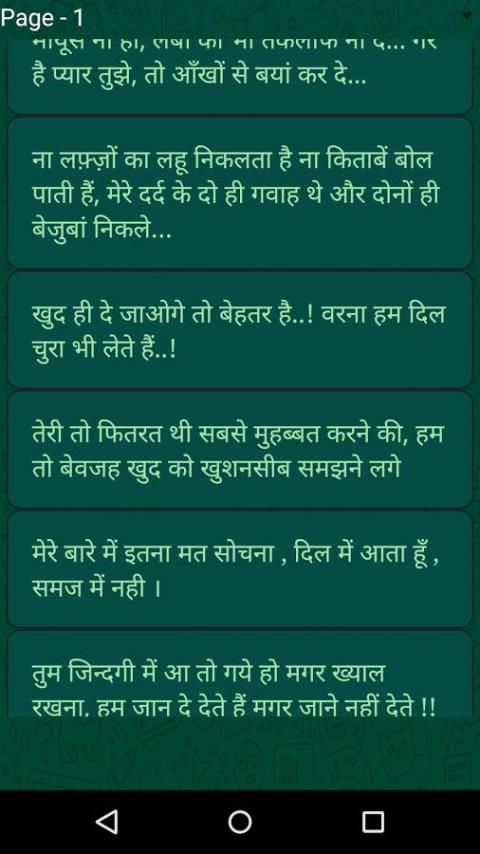 Page - 1
मायूस ना हो, लबों को भी तकलीफ ना दे... गर
है प्यार तुझे, तो आँखों से बयां कर दे...
ना लफ़्ज़ों का लहू निकलता है ना किताबें बोल
पाती हैं, मेरे दर्द के दो ही गवाह थे और दोनों ही
बेजुबां निकले...
खुद ही दे जाओगे तो बेहतर है..! वरना हम दिल
चुरा भी लेते हैं..!
तेरी तो फितरत थी सबसे मुहब्बत करने की, हम
तो बेवजह खुद को खुशनसीब समझने लगे
मेरे बारे में इतना मत सोचना , दिल में आता हूँ ,
समज में नही ।
तुम जिन्दगी में आ तो गये हो मगर ख्याल
रखना, हम जान दे देते हैं मगर जाने नहीं देते !!